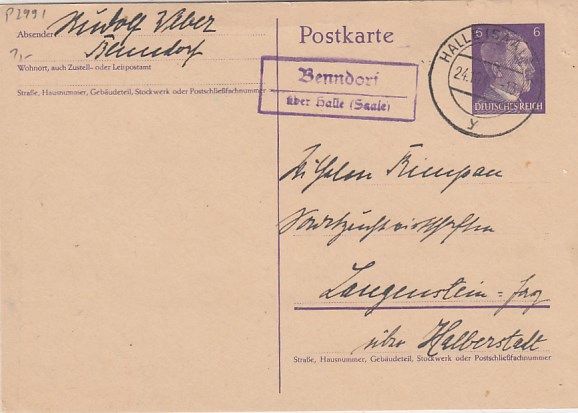 P2991
7,-
Absender: Rudolf Weber
Benndorf
Wohnort, auch Zustell- oder Leitpostamt
Straße, Hausnummer, Gebäudeteil, Stockwerk oder Postschließfachnummer
Postkarte
Benndorf
über Halle (Saale)
HALLE (S
24.
y
6 6
DEUTSCHES REICH
Wilhelm Rimpau
Saatzuchtwirtschaften
Langenstein-
über Halberstadt
Straße, Hausnummer, Gebäudeteil, Stockwerk oder Postschließfachnummer